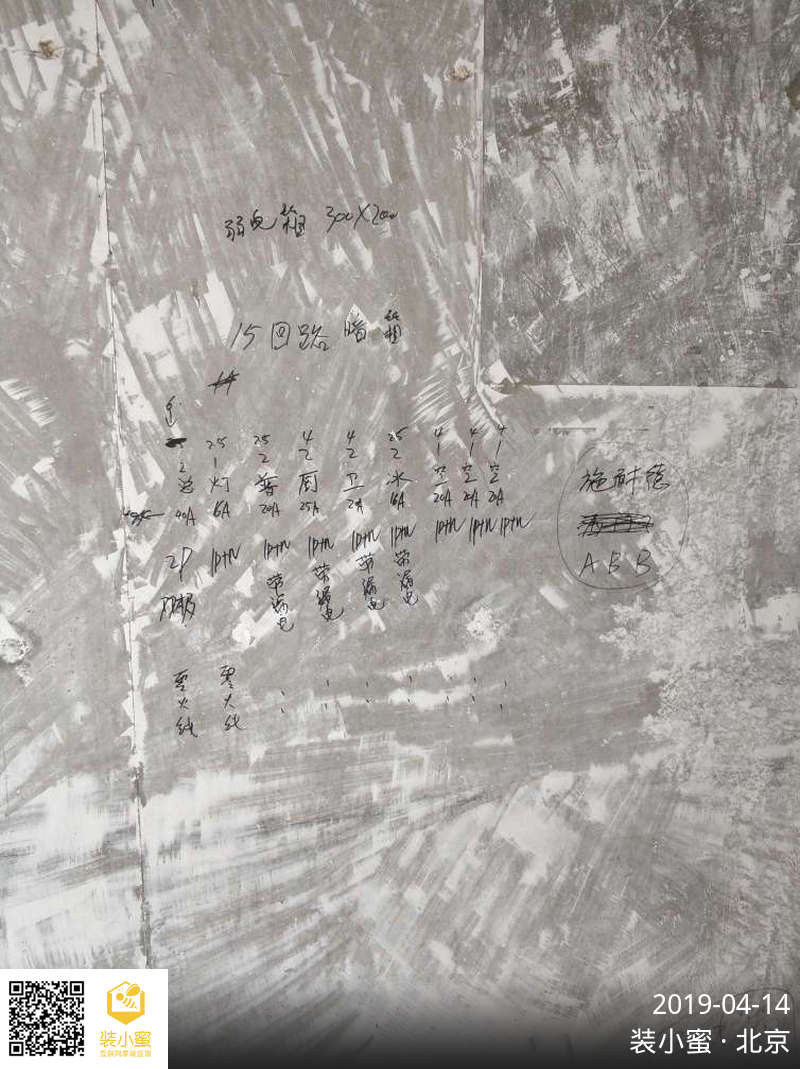 弱电箱 300×200
15回路暗
2.5 2.5 4 4 2.5 4 4 4
2 1 2 2 2 2 1 1 1
总 灯 普 厨 卫 冰 空 空 空
40A 16A 20A 25A 20A 16A 20A 20A 20A
2P 1P+N 1P+N 1P+N 1P+N 1P+N 1P+N 1P+N 1P+N
双极 带漏电 带漏电 带漏电 带漏电
零火线 零火线
施耐德
ABB
装小蜜
互联网家装监理
2019-04-14
装小蜜·北京